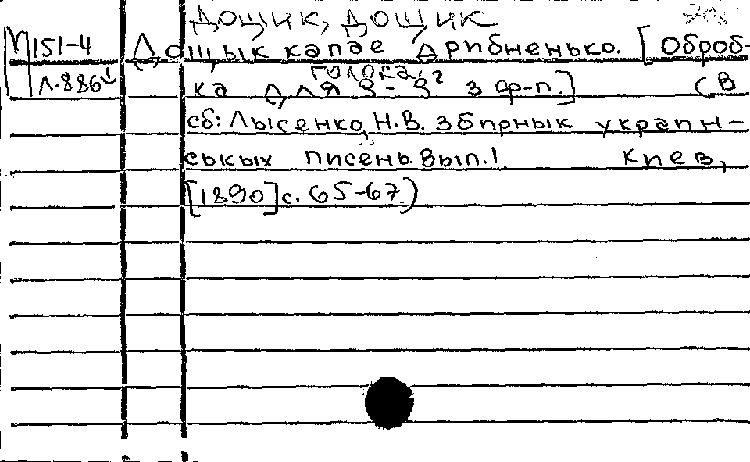 ДОЩИК, ДОЩИК
М151-4 Дощык капае дрибненько. [Оброб-
Л-886 голока,
ка для з ф-п.] (В
сб: Лысенко, Н.В. Збирнык украин-
ськых писень. Вып.1. Киев,
[1890] с. 65-67)